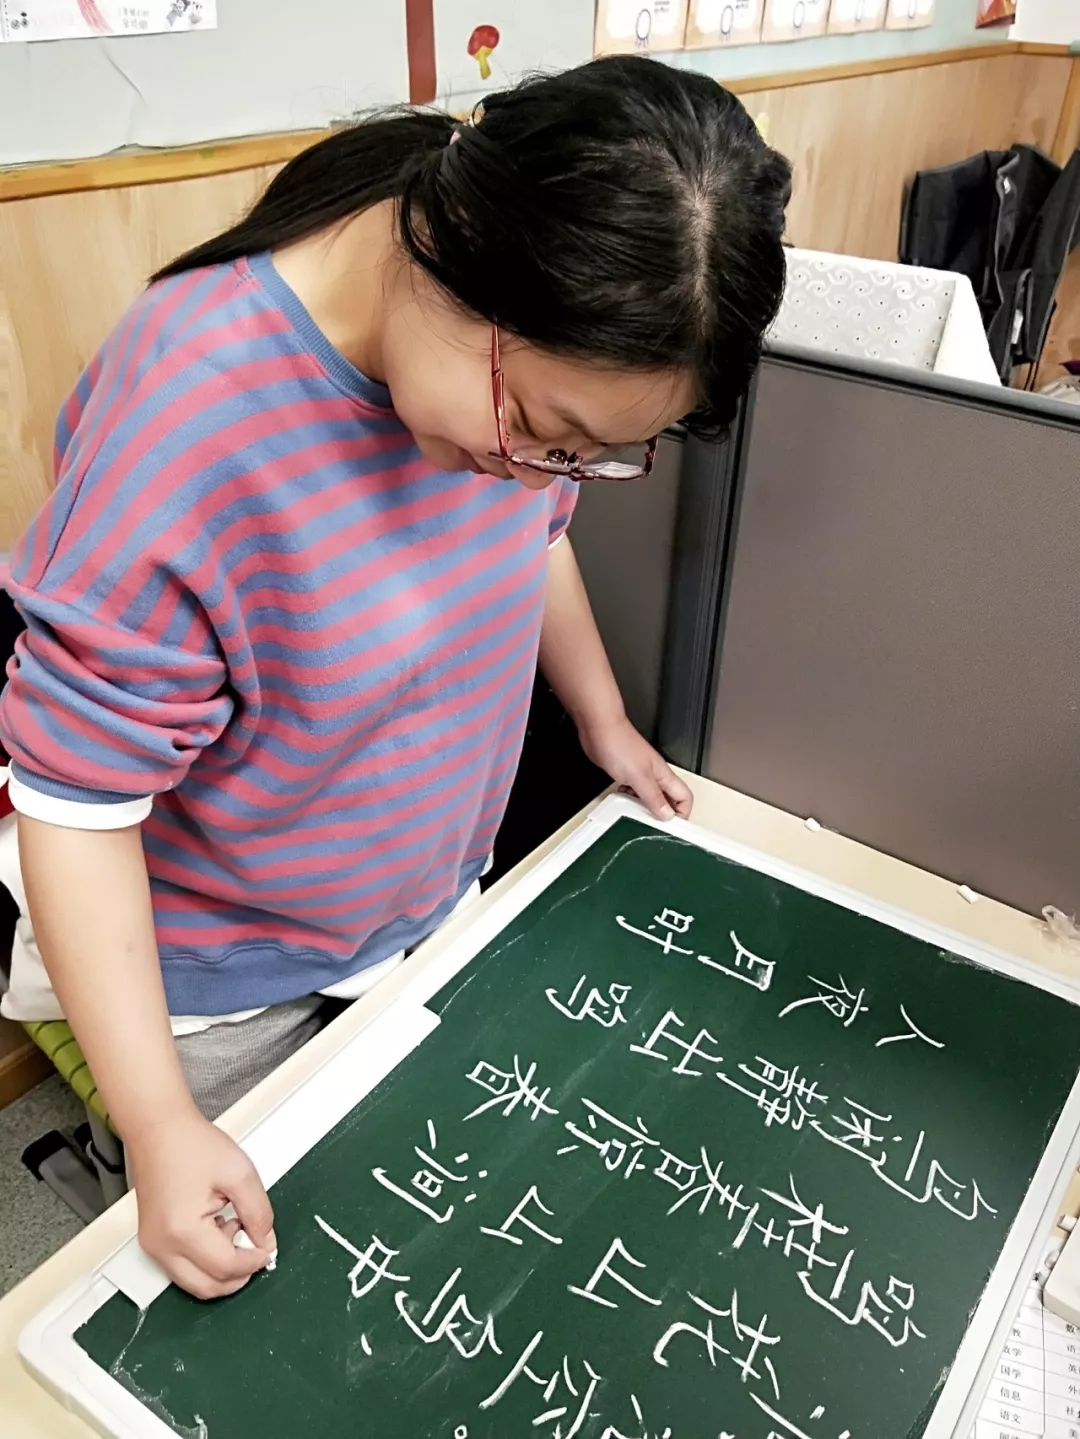 鸟鸣涧
人闲桂花落
夜静春山空。
月出惊山鸟
时鸣春涧中.
数学
国学
信息
语文